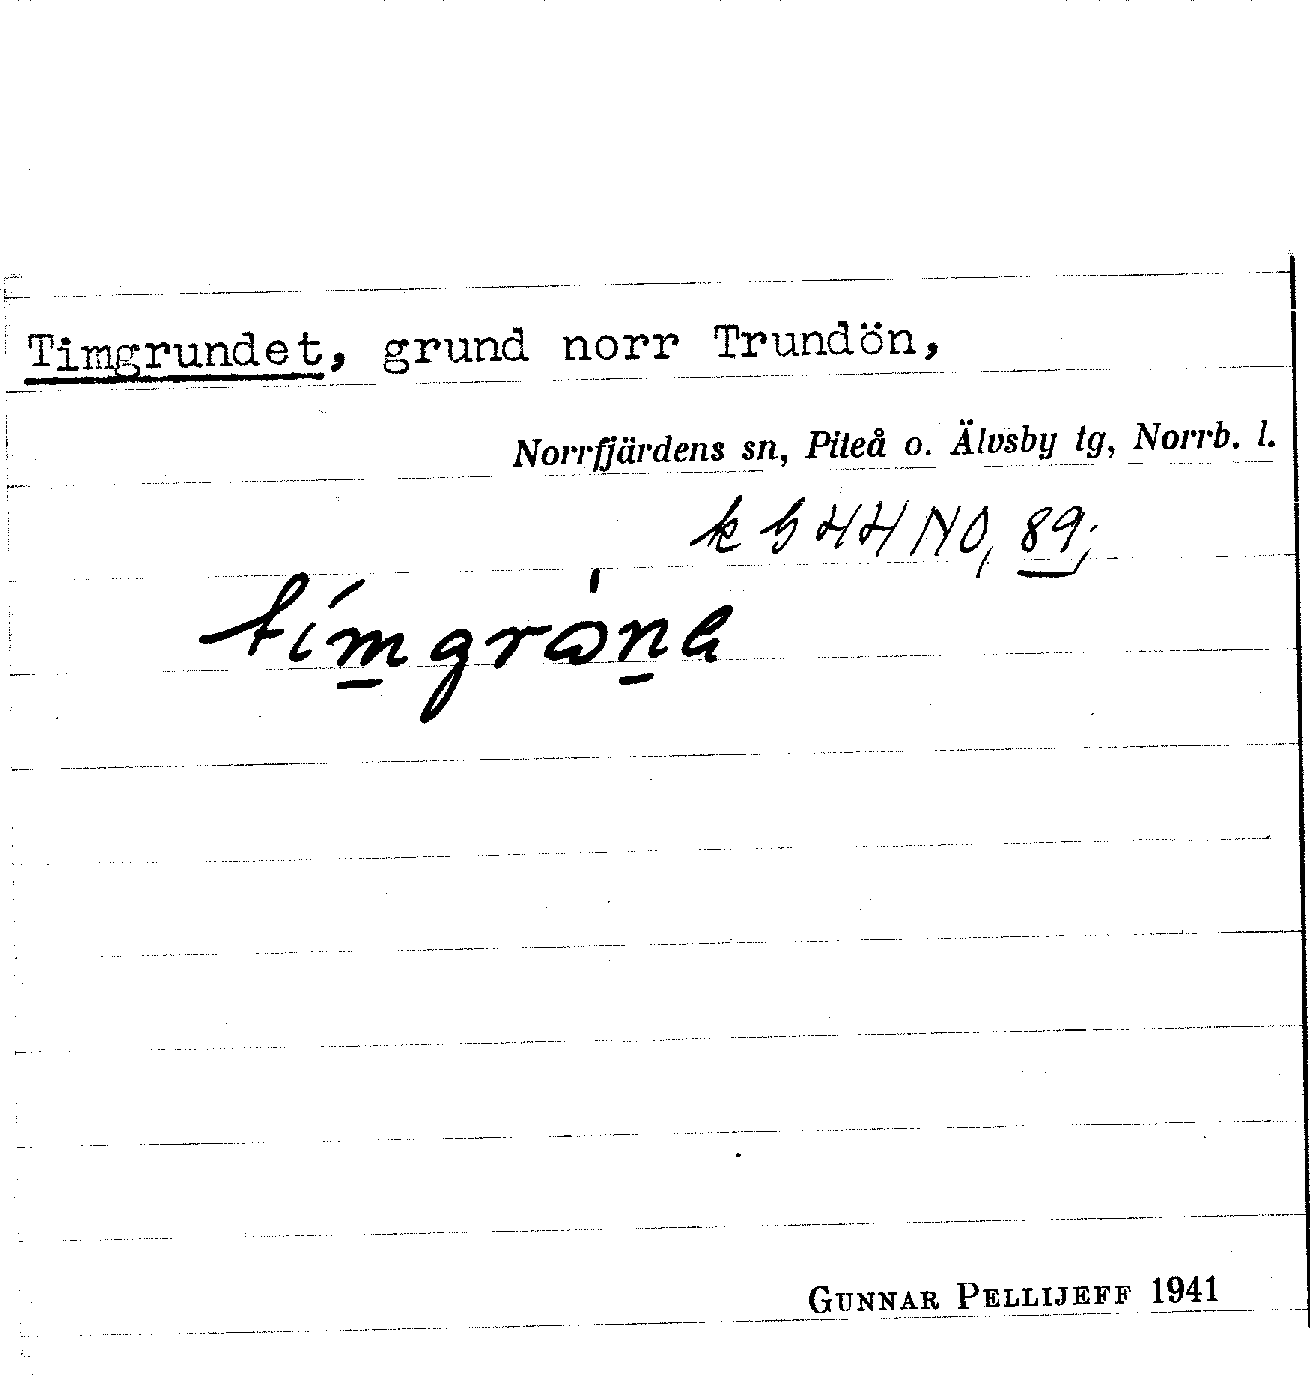 Timgrundet, grund norr Trundön,
Norrfjärdens sn, Piteå o. Älvsby tg, Norrb. l.
k b 44 NO, 89;
GUNNAR PELLIJEFF 1941